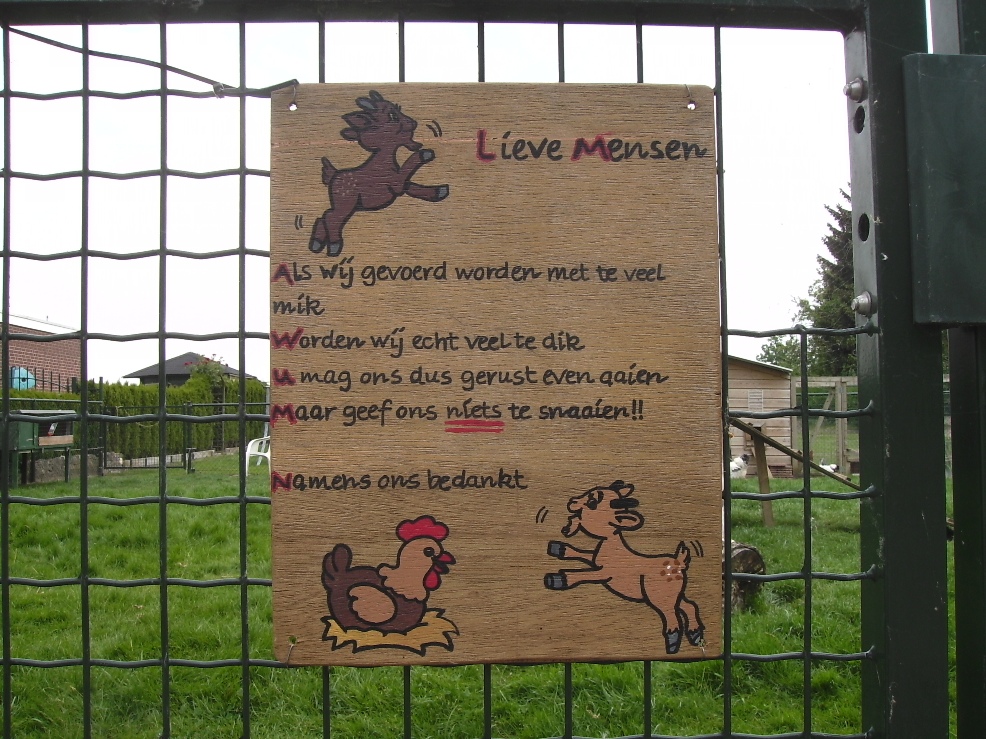 Lieve Mensen
Als wij gevoerd worden met te veel
mik
Worden wij echt veel te dik
U mag ons dus gerust even aaien
Maar geef ons niets te snaaien!!
Namens ons bedankt